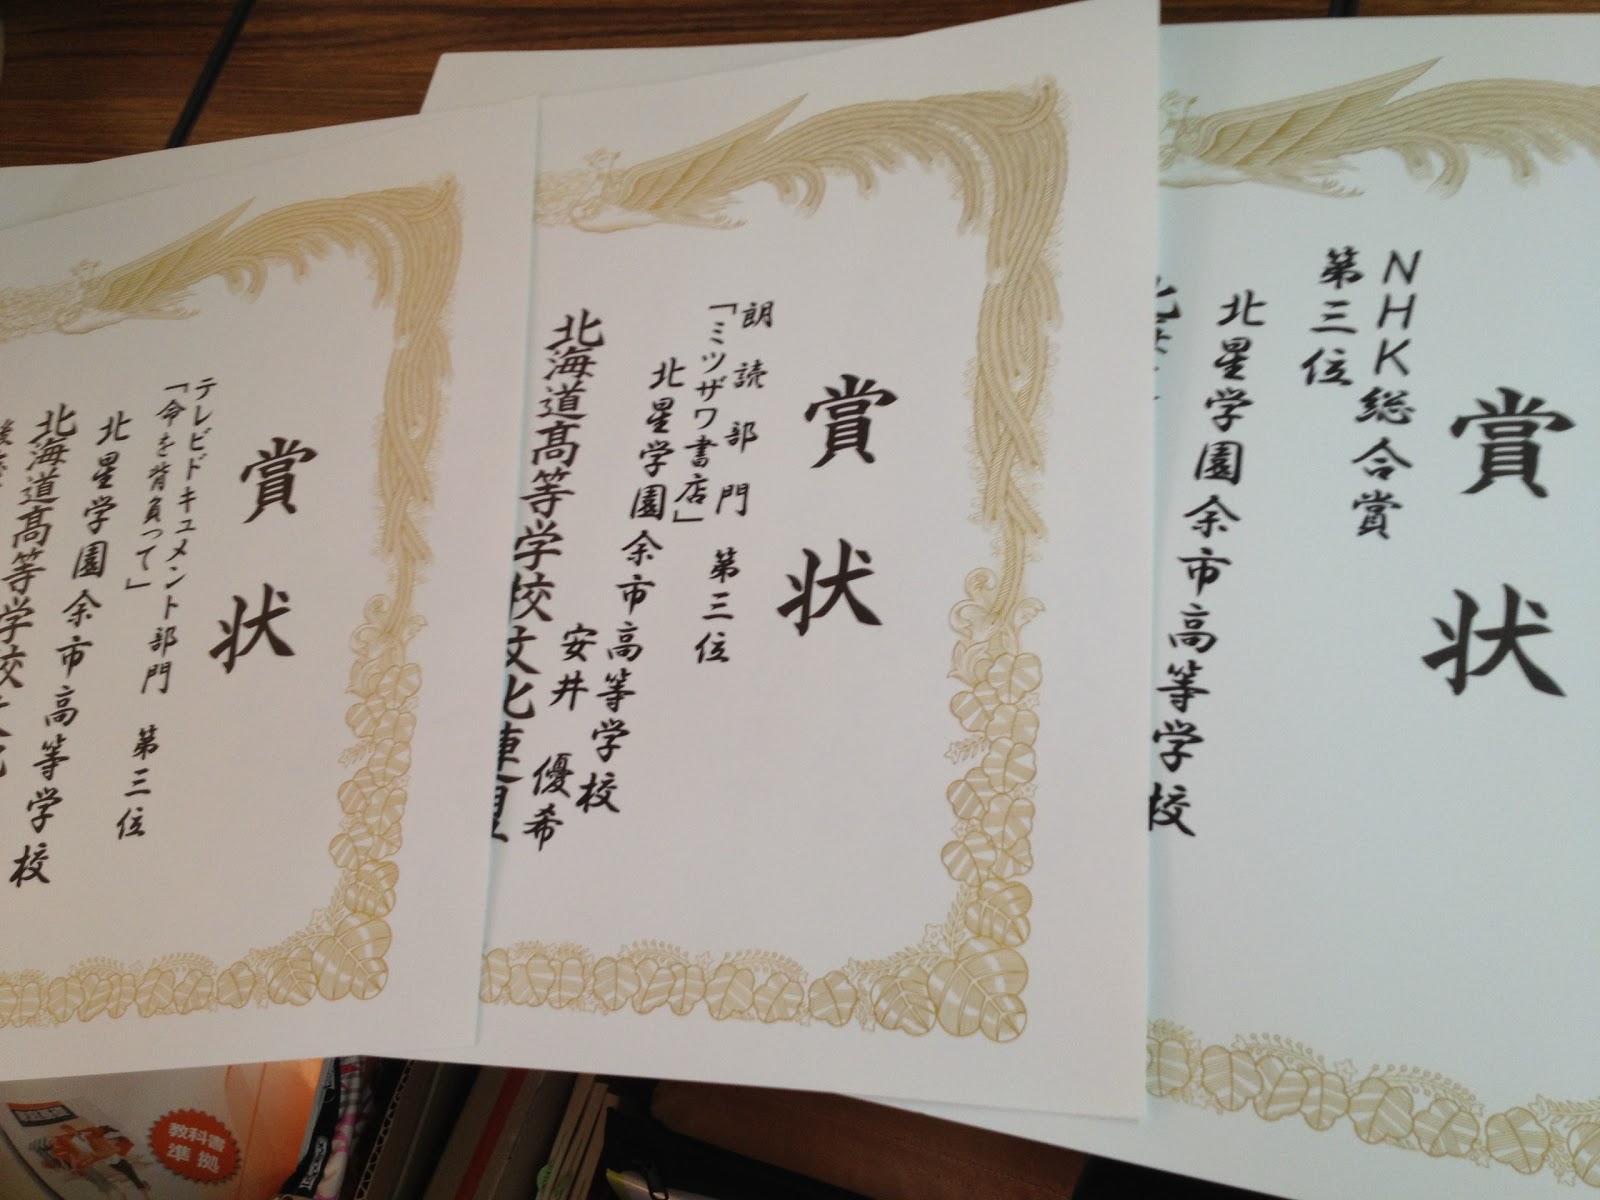 賞状
NHK総合賞
第三位
北星学園余市高等学校
賞状
朗読部門 第三位
「ミツザワ書店」
北星学園余市高等学校
安井 優希
北海道高等学校文化連盟
賞状
テレビドキュメント部門 第三位
「命を背負って」
北星学園余市高等学校
北海道高等学校文化
教科書
準拠